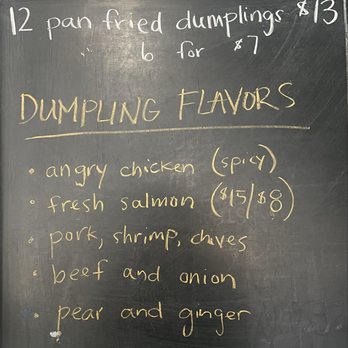 12 pan fried dumplings $13
" 6 for $7
DUMPLING FLAVORS
• angry chicken (spicy)
• fresh salmon ($15/$8)
• pork, shrimp, chives
• beef and onion
• pear and ginger